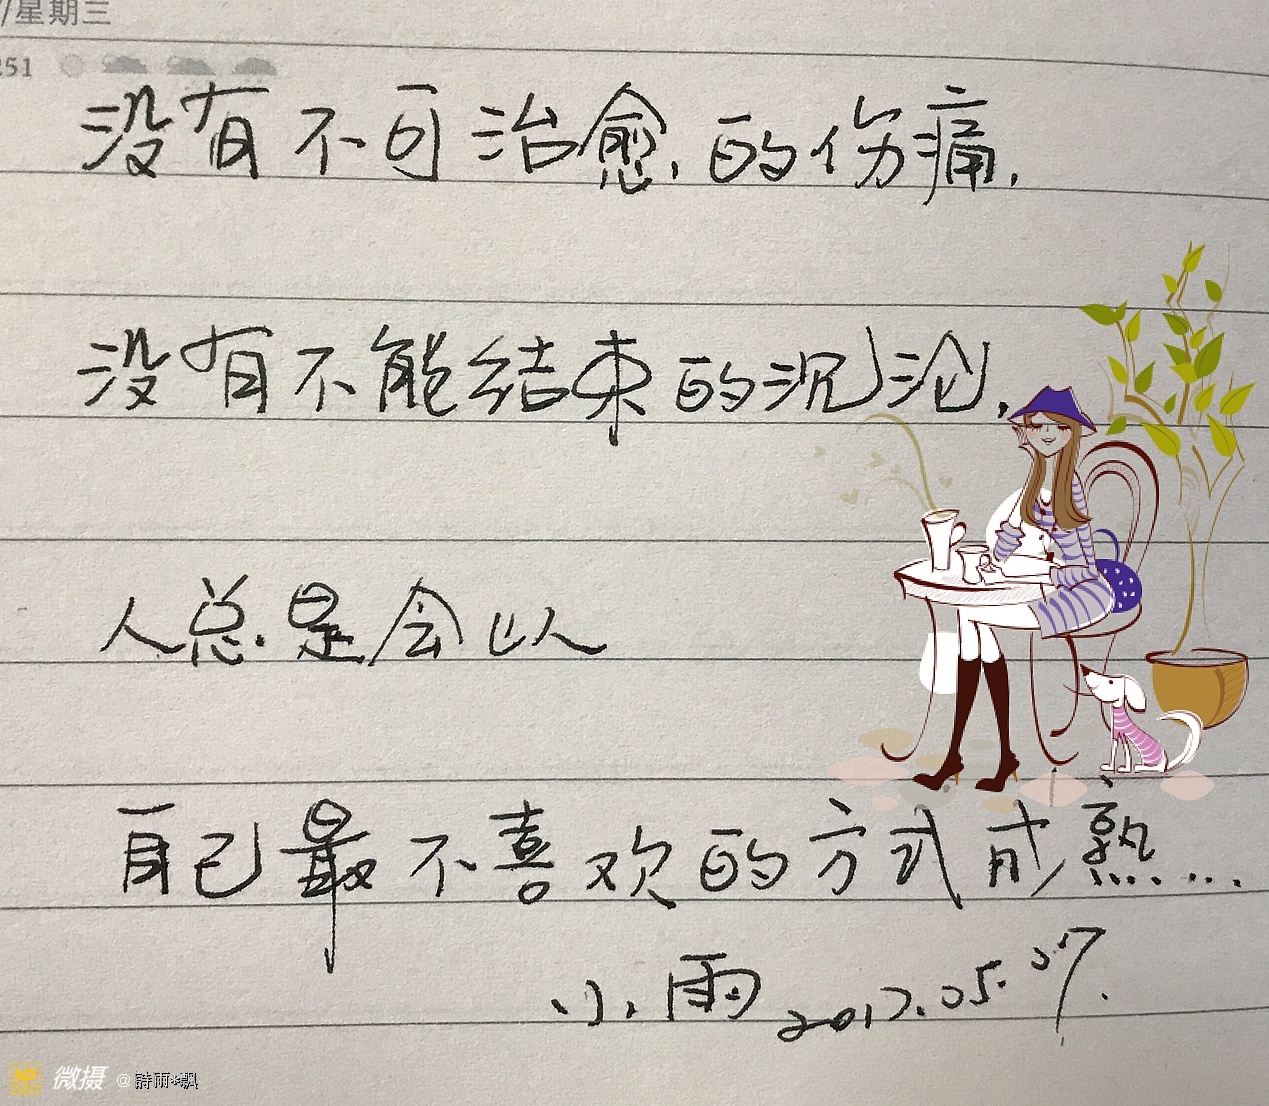 /星期三
251
没有不可治愈的伤痛,
没有不能结束的沉沦,
人总是会以
自己最不喜欢的方式成熟...
小雨 2017.05.17.
微摄 @詩雨*飘